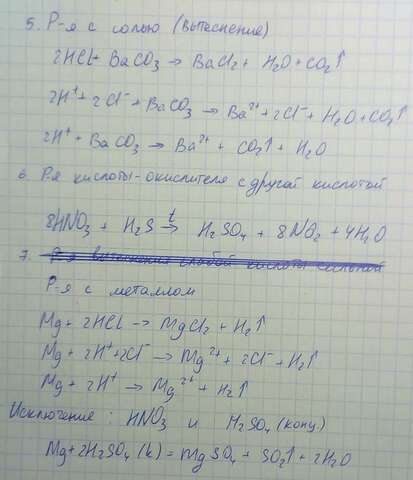 5. Р-я с солью (вытеснение)
2HCl + BaCO₃ → BaCl₂ + H₂O + CO₂↑
2H⁺ + 2Cl⁻ + BaCO₃ → Ba²⁺ + 2Cl⁻ + H₂O + CO₂↑
2H⁺ + BaCO₃ → Ba²⁺ + CO₂↑ + H₂O
6. Р-я кислоты-окислителя с другой кислотой
8HNO₃ + H₂S →ᵗ H₂SO₄ + 8NO₂ + 4H₂O
7. Р-я вытеснения слабой кислоты сильной
Р-я с металлом
Mg + 2HCl → MgCl₂ + H₂↑
Mg + 2H⁺ + 2Cl⁻ → Mg²⁺ + 2Cl⁻ + H₂↑
Mg + 2H⁺ → Mg²⁺ + H₂↑
Исключение: HNO₃ и H₂SO₄ (конц)
Mg + 2H₂SO₄ (к) = MgSO₄ + SO₂↑ + 2H₂O